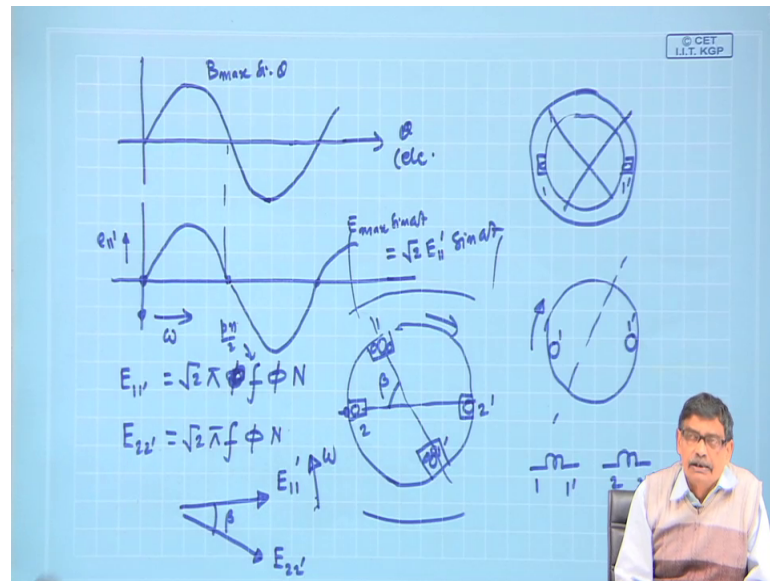 © CET
I.I.T. KGP
Bmax Sin θ
θ
(elc.
1 1'
e11'
Emax Sin ωt
= √2 E11' Sin ωt
ω
pn
2
E11' = √2 π f φ N
E22' = √2 π f φ N
1
1'
β
2 2'
1'
E11'
ω
β
E22'
1 1' 2